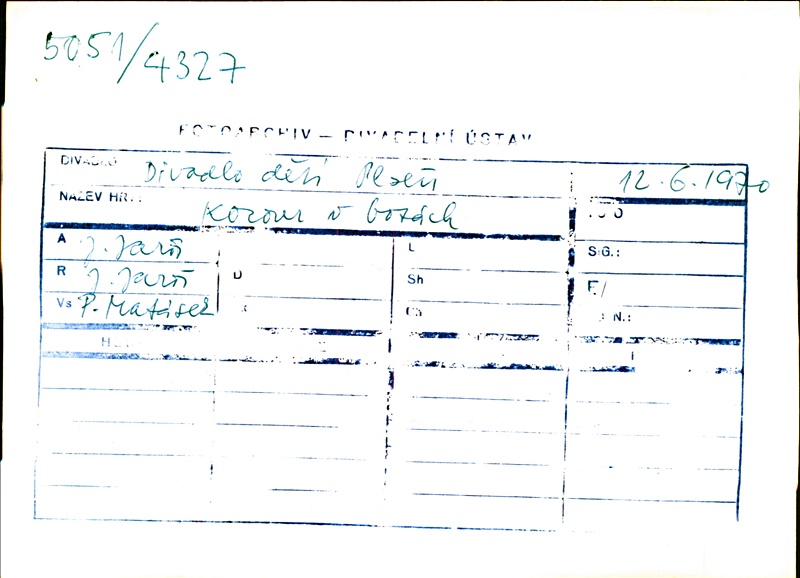 5051/4327
FOTOARCHIV – DIVADELNÍ ÚSTAV
DIVADLO Divadlo dětí Plzeň 12.6.1970
NÁZEV HRY: Kocour v botách
A J. Jaroš L SIG.:
R J. Jaroš D Sh F/
Vs P. Matásek Ch N.: